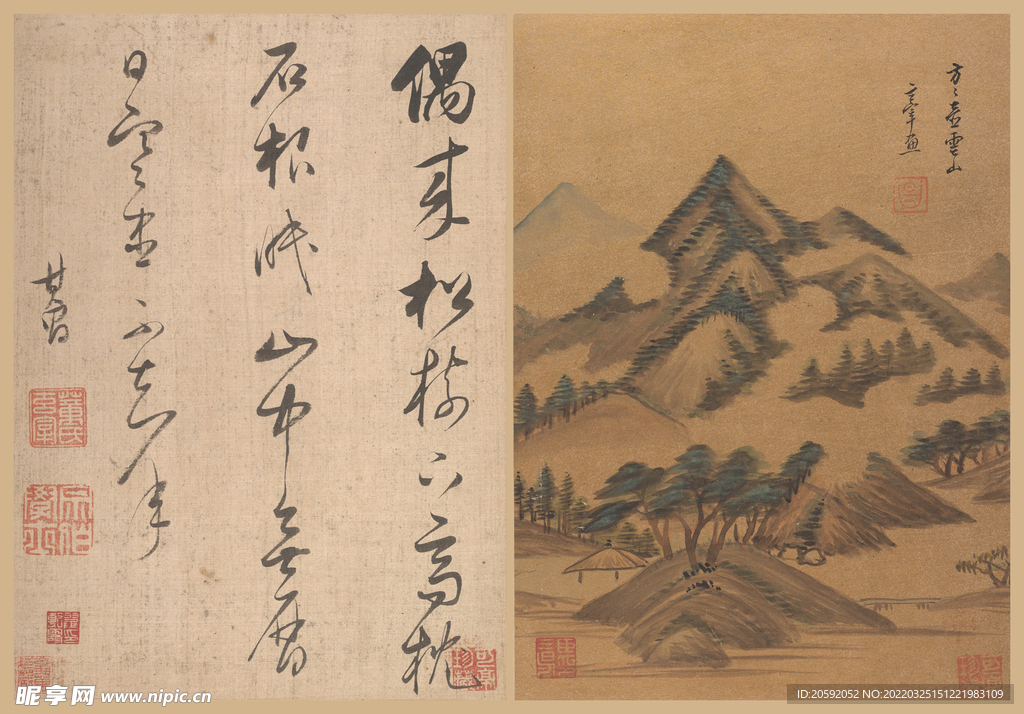 方〻壺雲山
玄宰畫
偶来松樹下高枕
石根眠山中無曆
日寒盡不知年
其昌
董氏玄宰
宗伯學士
昵享网 www.nipic.cn
ID:20592052 NO:20220325151221983109